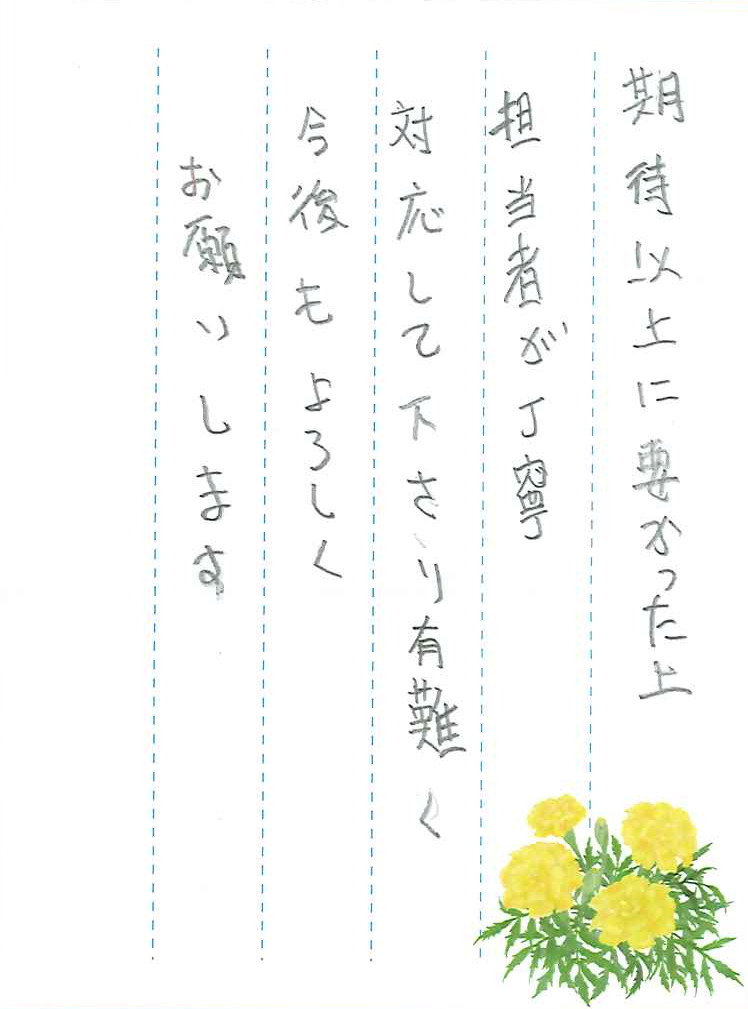 期待以上に要かった上
担当者が丁寧
対応して下さり有難く
今後もよろしく
お願いします